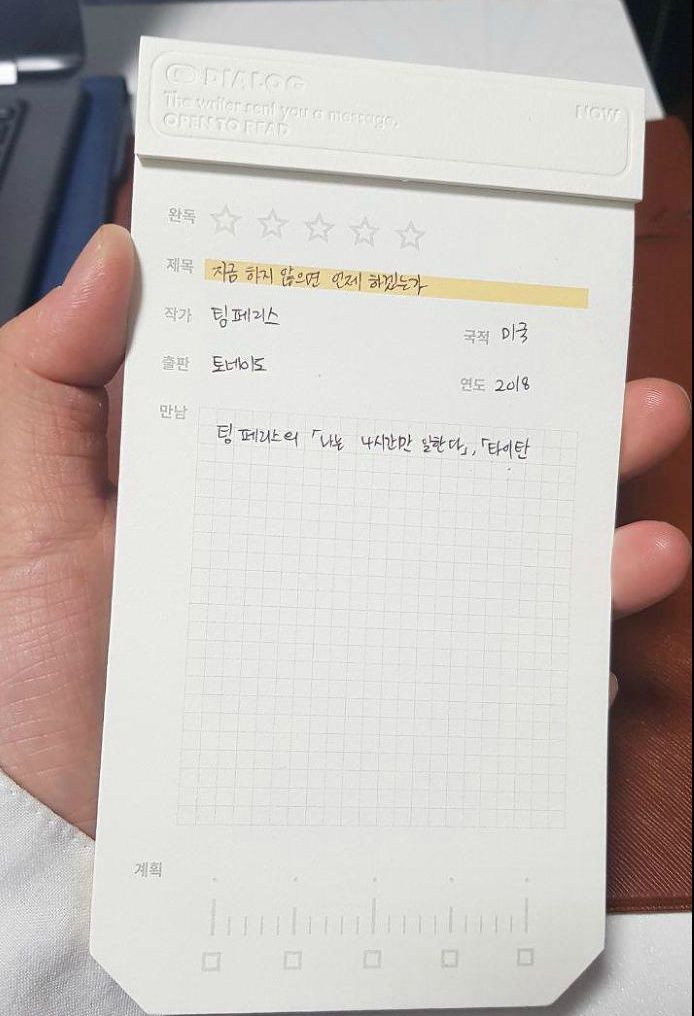 DIALOG
The writer sent you a message. NOW
OPEN TO READ
완독
제목 지금 하지 않으면 언제 하겠는가
작가 팀페리스
국적 미국
출판 토네이도
연도 2018
만남
팀 페리스의 「나는 4시간만 일한다」, 「타이탄
계획